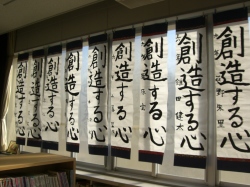 創造する心
創造する心
創造する心
創造する心
創造する心
創造する心
創造する心
創造する心